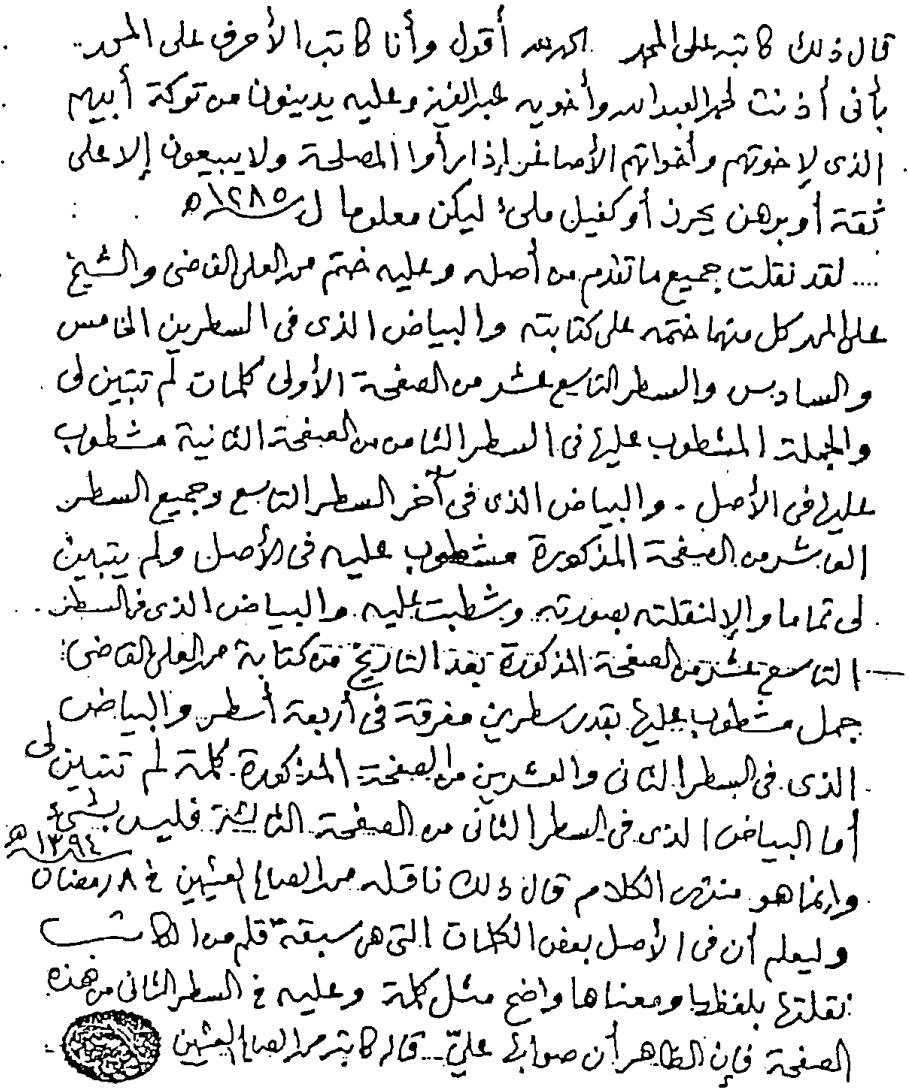 قال ذلك كاتبه علي المحمد الحمد لله أقول وأنا كاتب الأحرف علي المحمد
بأني أذنت لحمد العبدالله وأخويه عبدالعزيز وعليه يدينون من توكة أبيهم
الذي لإخوتهم وأخواتهم الأصاغر إذا رأوا المصلحة ولا يبيعون إلا على
ثقة أو برهن يحرز أو كفيل ملئ ليكن معلوما ١٢٨٥ هـ
.... لقد نقلت جميع ما تقدم من أصله وعليه ختم محمد العلي القاضي والشيخ
علي المحمد كل منهما ختمه على كتابته والبياض الذي في السطرين الخامس
والسادس والسطر التاسع عشر من الصفحة الأولى كلمات لم تتبين لي
والجملة المشطوب عليها في السطر الثامن من الصفحة الثانية مشطوب
عليها في الأصل . والبياض الذي في آخر السطر التاسع وجميع السطر
العاشر من الصفحة المذكورة مشطوب عليه في الأصل ولم يتبين
لي تماما وإلا لنقلته بصورته وشطبت عليه والبياض الذي في السطر
التاسع عشر من الصفحة المذكورة بعد التاريخ من كتابة محمد العلي القاضي:
جمل مشطوب عليها بقدر سطرين مفرقة في أربعة أسطر والبياض
الذي في السطر الثاني والعشرين من الصفحة المذكورة كلمة لم تتبين لي
أما البياض الذي في السطر الثاني من الصفحة الثالثة فليس بشيء
وإنما هو منتهى الكلام قال ذلك ناقله محمد الصالح العثيمين في ٨ رمضان ١٣٩٤ هـ
وليعلم أن في الأصل بعض الكلمات التي هي سبقة قلم من الكاتب
نقلتها بلفظها ومعناها واضح مثل كلمة وعليه في السطر الثاني من هذه
الصفحة فإن الظاهر أن صوابها عليّ . قاله كاتبه محمد الصالح العثيمين